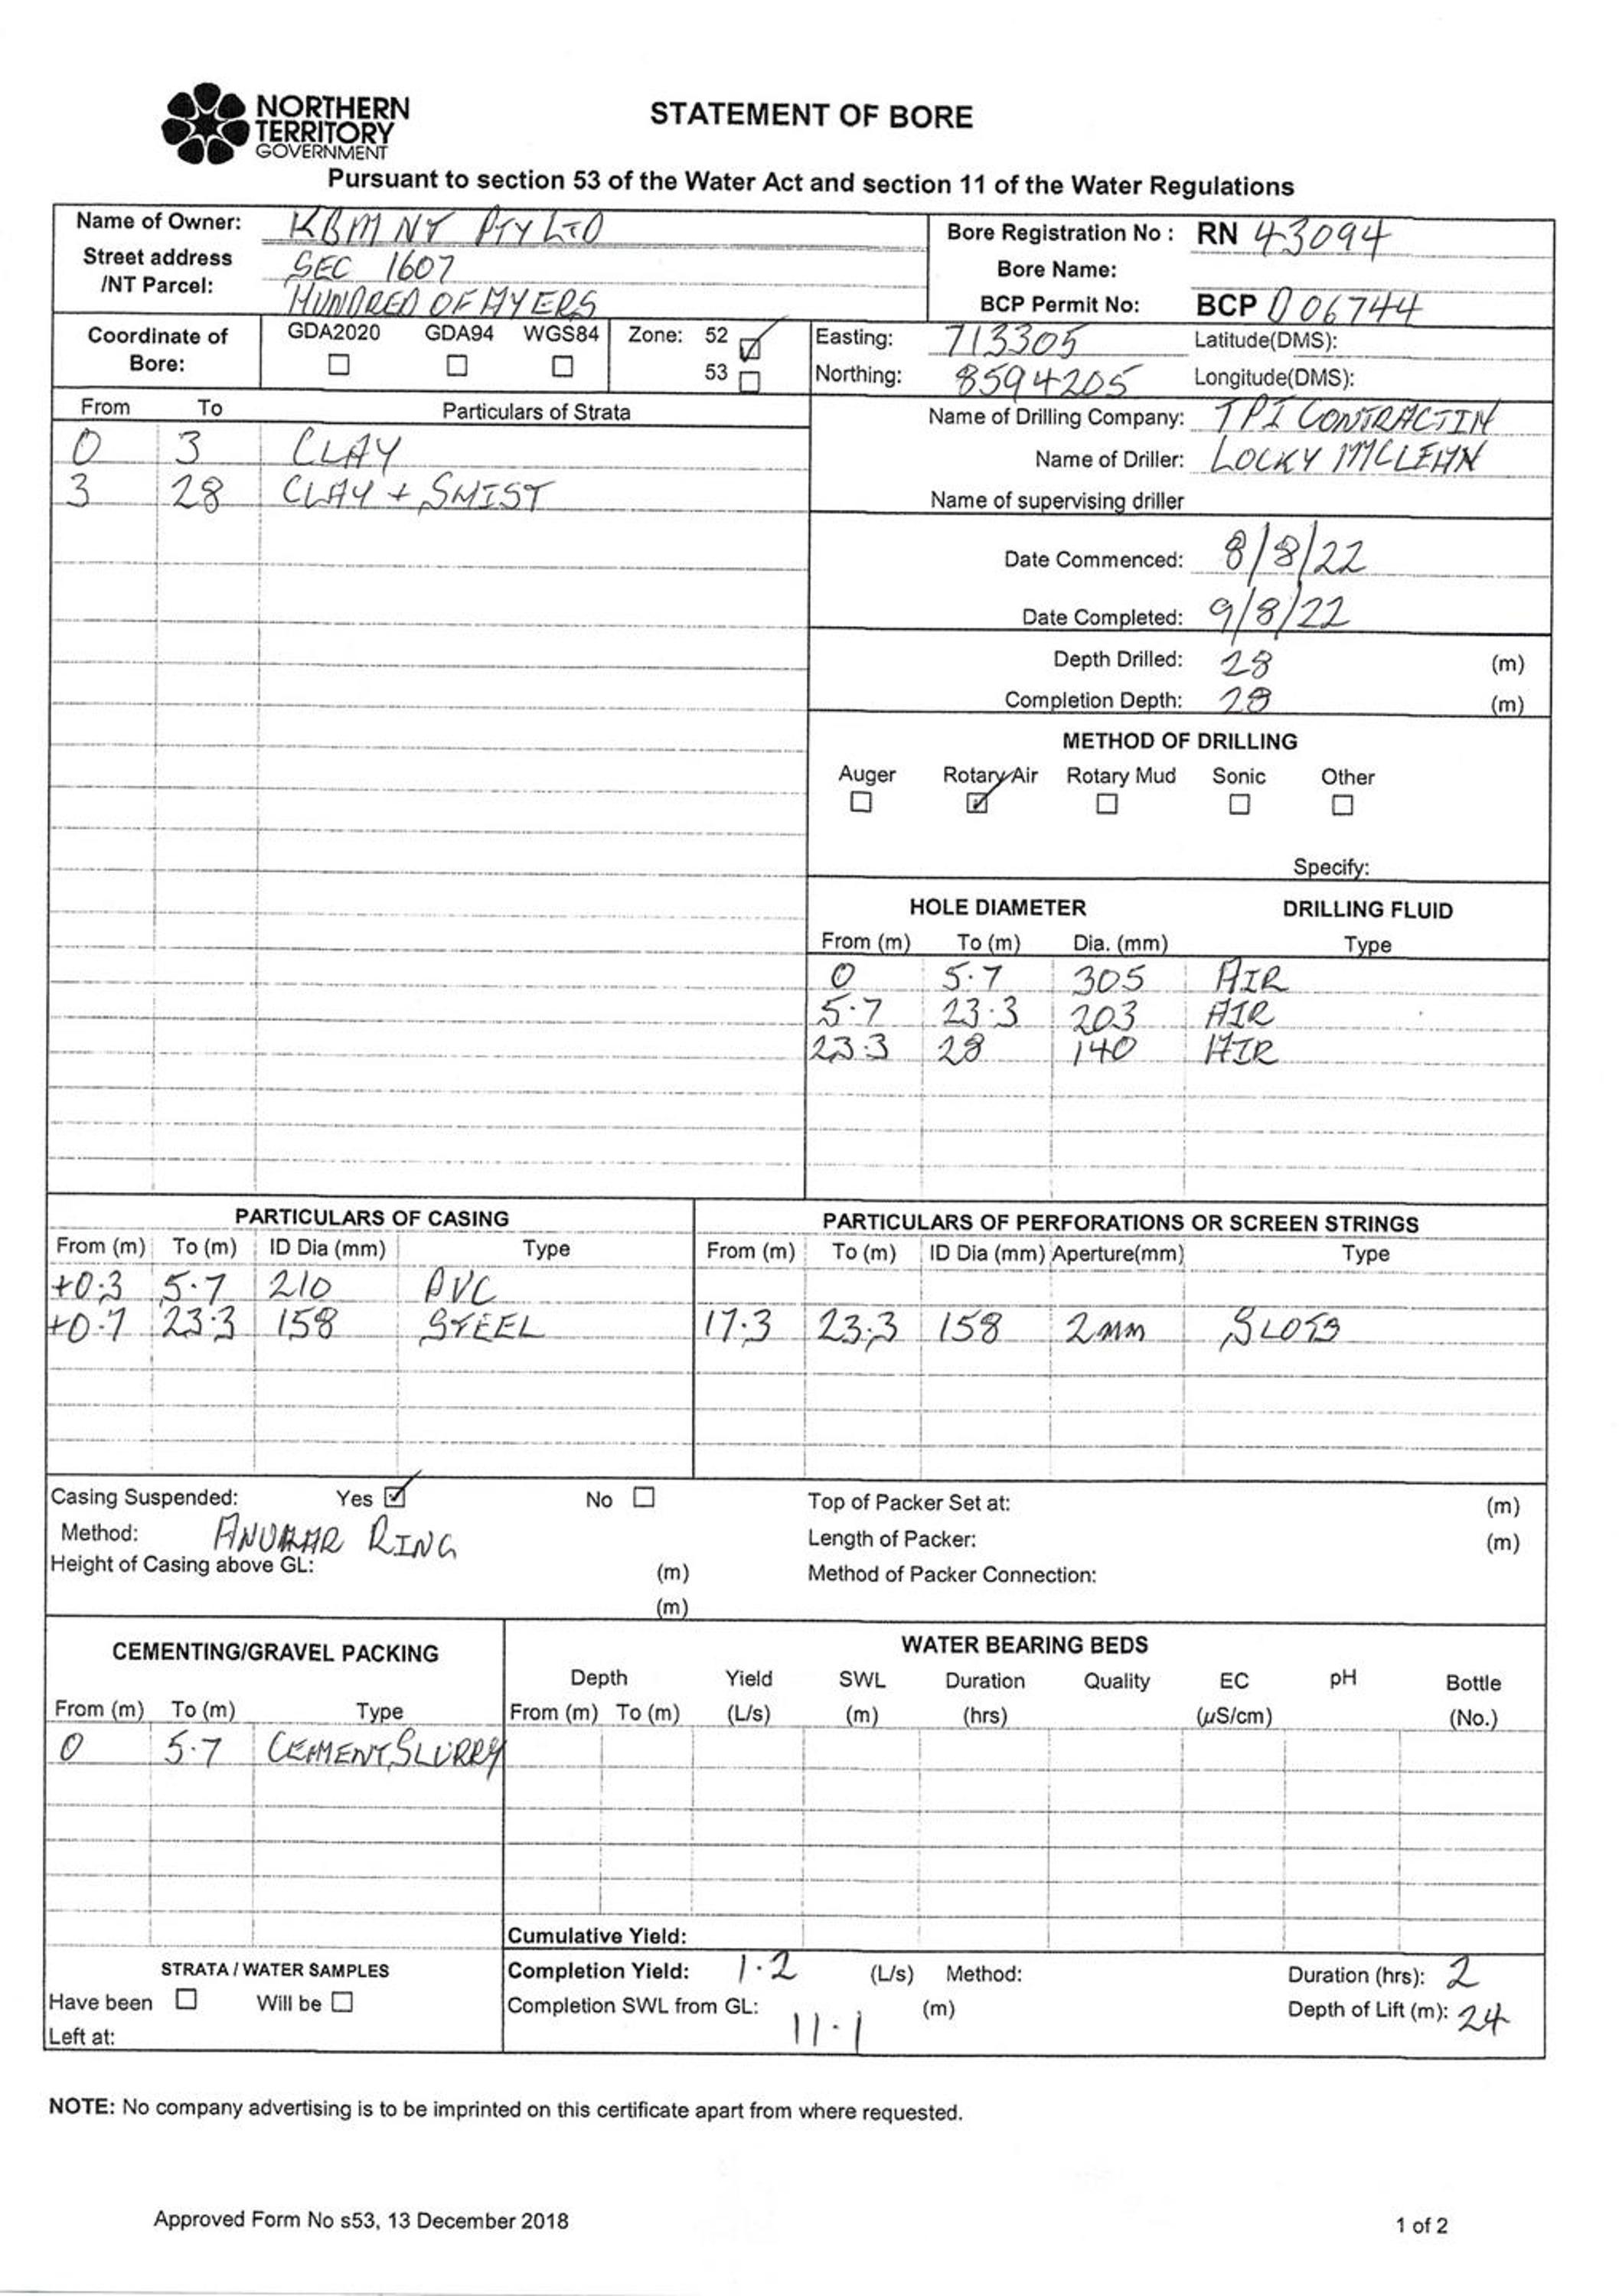 NORTHERN
TERRITORY
GOVERNMENT
STATEMENT OF BORE
Pursuant to section 53 of the Water Act and section 11 of the Water Regulations
Name of Owner: KBM NT PTY LTD
Street address SEC 1607
/NT Parcel: HUNDRED OF AYERS
Bore Registration No : RN 43094
Bore Name:
BCP Permit No: BCP 006744
Coordinate of Bore: GDA2020 GDA94 WGS84 Zone: 52 53
Easting: 713305 Latitude(DMS):
Northing: 8594205 Longitude(DMS):
From To Particulars of Strata
0 3 CLAY
3 28 CLAY + SHIST
Name of Drilling Company: TPI CONTRACTIN
Name of Driller: LOCKY MCLEAN
Name of supervising driller
Date Commenced: 8/8/22
Date Completed: 9/8/22
Depth Drilled: 28 (m)
Completion Depth: 28 (m)
METHOD OF DRILLING
Auger Rotary Air Rotary Mud Sonic Other
Specify:
HOLE DIAMETER DRILLING FLUID
From (m) To (m) Dia. (mm) Type
0 5.7 305 AIR
5.7 23.3 203 AIR
23.3 28 140 AIR
PARTICULARS OF CASING
From (m) To (m) ID Dia (mm) Type
+0.3 5.7 210 PVC
+0.7 23.3 158 STEEL
PARTICULARS OF PERFORATIONS OR SCREEN STRINGS
From (m) To (m) ID Dia (mm) Aperture(mm) Type
17.3 23.3 158 2mm SLOTS
Casing Suspended: Yes No
Method: RING
Height of Casing above GL: (m)
(m)
Top of Packer Set at: (m)
Length of Packer: (m)
Method of Packer Connection:
CEMENTING/GRAVEL PACKING
From (m) To (m) Type
0 5.7 CEMENT SLURRY
WATER BEARING BEDS
Depth Yield SWL Duration Quality EC pH Bottle
From (m) To (m) (L/s) (m) (hrs) (µS/cm) (No.)
Cumulative Yield:
STRATA / WATER SAMPLES
Have been Will be
Left at:
Completion Yield: 1.2 (L/s) Method: Duration (hrs): 2
Completion SWL from GL: 11.1 (m) Depth of Lift (m): 24
NOTE: No company advertising is to be imprinted on this certificate apart from where requested.
Approved Form No s53, 13 December 2018
1 of 2